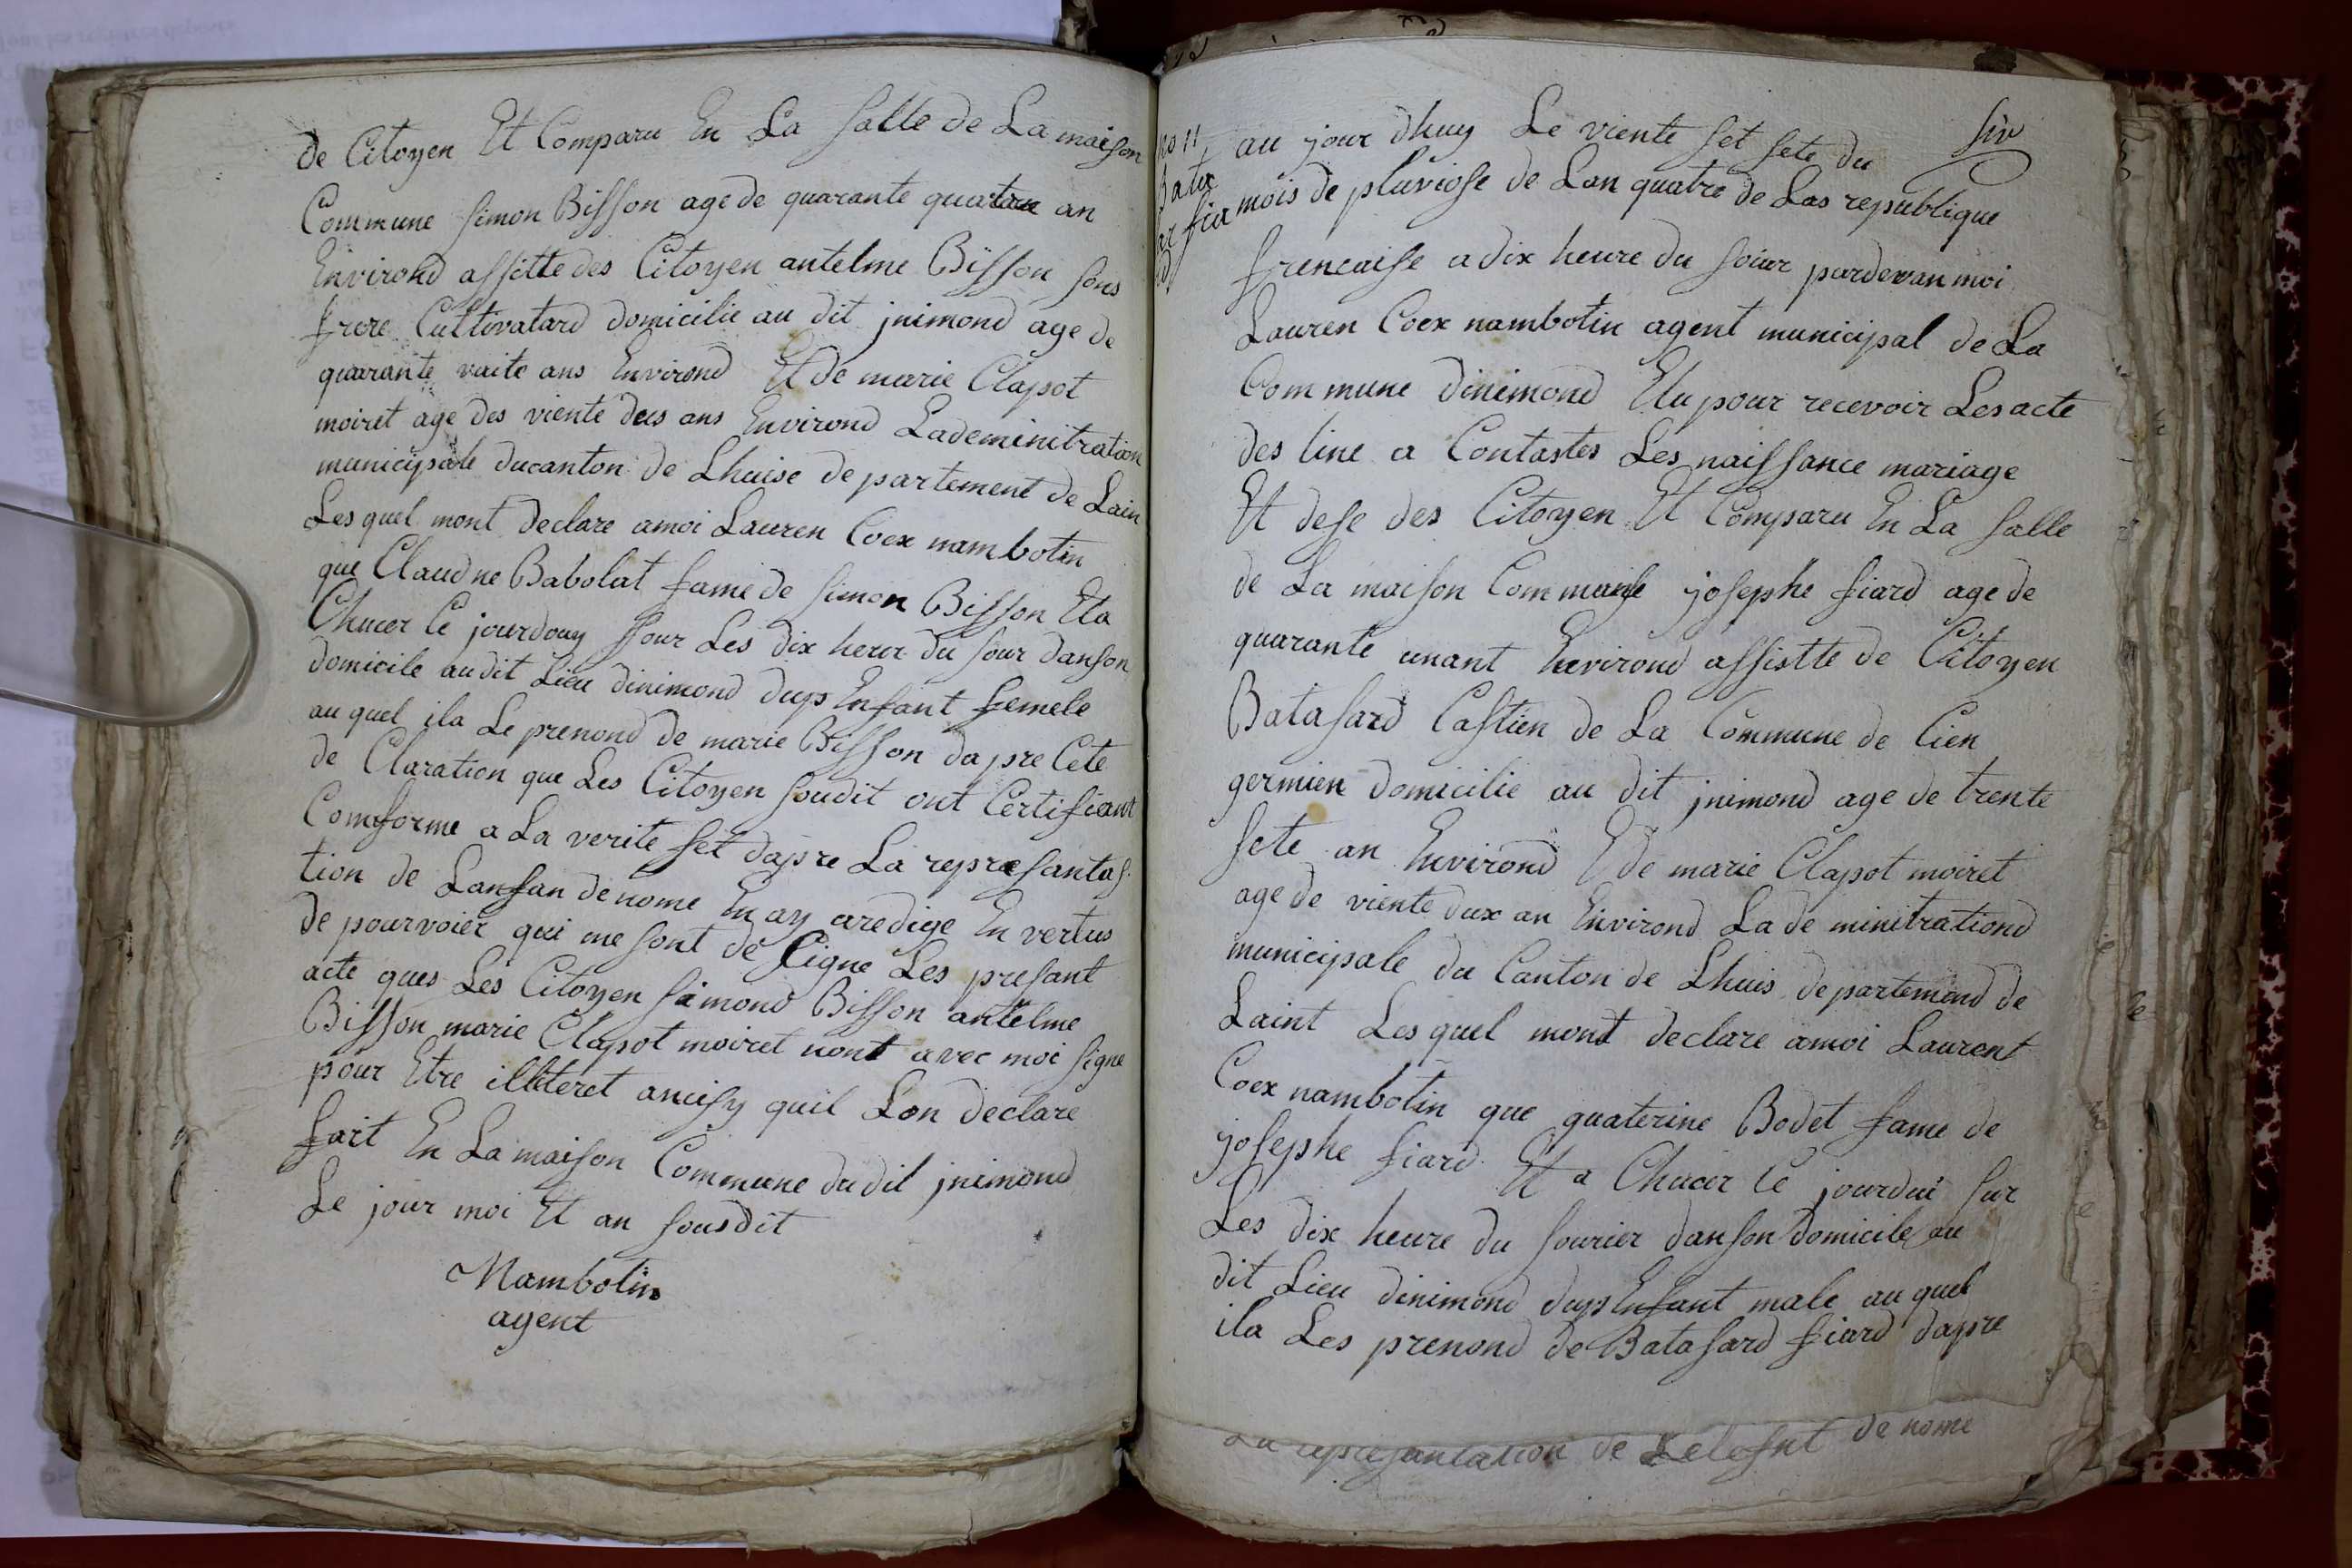 de Citoyen Et Comparu En La Salle de La maison
Commune Simon Bisson age de quarante quatre an
Environd assitte des Citoyen antelme Bisson sons
frere Cultivatard domicilie au dit jnimond age de
quarante vaite ans Environd Et de marie Clapot
moiret age des viente deus ans Environd Lademinitration
municipale ducanton de Lhuise departement de Lain
Les quel mont Declare amoi Lauren Coex nambotin
que Claudne Babolat fame de Simon Bisson Eta
Chucer Ce jourdouy sour Les dix herer du sour danson
domicile audit Lieu dinimond dups Enfant femele
au quel ila Le prenond de marie Bisson dapre Cete
de Claration que Les Citoyen soudit ont Certifieant
Comforme a La verite set dapre La represantas
tion de Lansan denome En ay aredige En vertus
de pourvoier qui me sont de Signe Les presant
acte ques Les Citoyen Simond Bisson antelme
Bisson marie Clapot moiret nont avec moi signe
pour Etre illeteret ancisy quil Lon declare
fait En La maison Commune du dit jnimond
Le jour moi Et an sousdit
Nambotin
agent
no 11
au jour dhuy Le viente set sete du
mois de pluviose de Lan quatre de Las republique
frencaise a dix heure du soiur pardevan moi
Lauren Coex nambotin agent municipal de La
Commune dinimond Elu pour recevoir Les acte
des tine a Contastes Les naissance mariage
Et dese des Citoyen Et Comparu En La Salle
de La maison Commune josephe fiard age de
quarante unant Environd assistte de Citoyen
Batasard Castien de La Commune de Cien
germien domicilie au dit jnimond age de trente
sete an Environd E de marie Clapot moiret
age de viente dux an Environd La de minitrationd
municipale du Canton de Lhuis departemend de
Laint Les quel mont declare amoi Laurent
Coex nambotin que quaterine Bodet fame de
josephe fiard Et a Chucer Ce jourdui sur
Les dix heure du sourier danson domicile au
dit Lieu dinimond dups Enfant male au quel
ila Les prenond de Batasard fiard dapre
La represantation de de nome